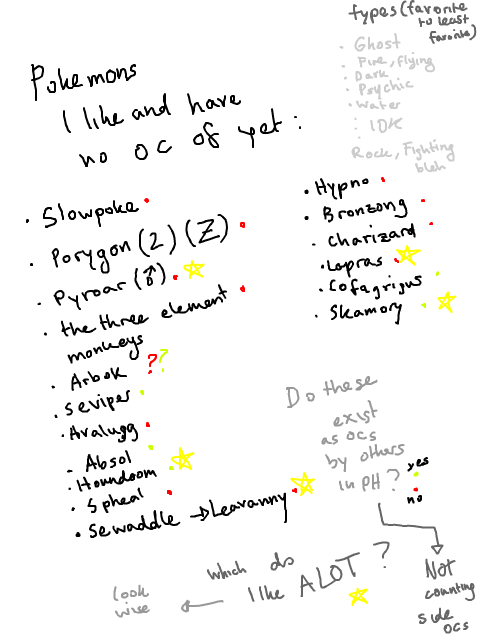 types (favorite
to least
favorite)
· Ghost
· Fire, flying
· Dark
· Psychic
· Water
: IDK
Rock, Fighting
bleh
Pokemons
I like and have
no OC of yet :
· Slowpoke
· Porygon (2) (Z)
· Pyroar (♂)
· the three element
monkeys
· Arbok ??
· Seviper
· Avalugg
- Absol
· Houndoom
· Spheal
· Sewaddle → Leavanny
· Hypno
· Bronzong
· Charizard
· Lapras
· Cofagrigus
· Skamory
Do these
exist
as OCs
by others
in PH ?
yes
no
Not
counting
side
OCs
which do
I like ALOT ?
look
wise